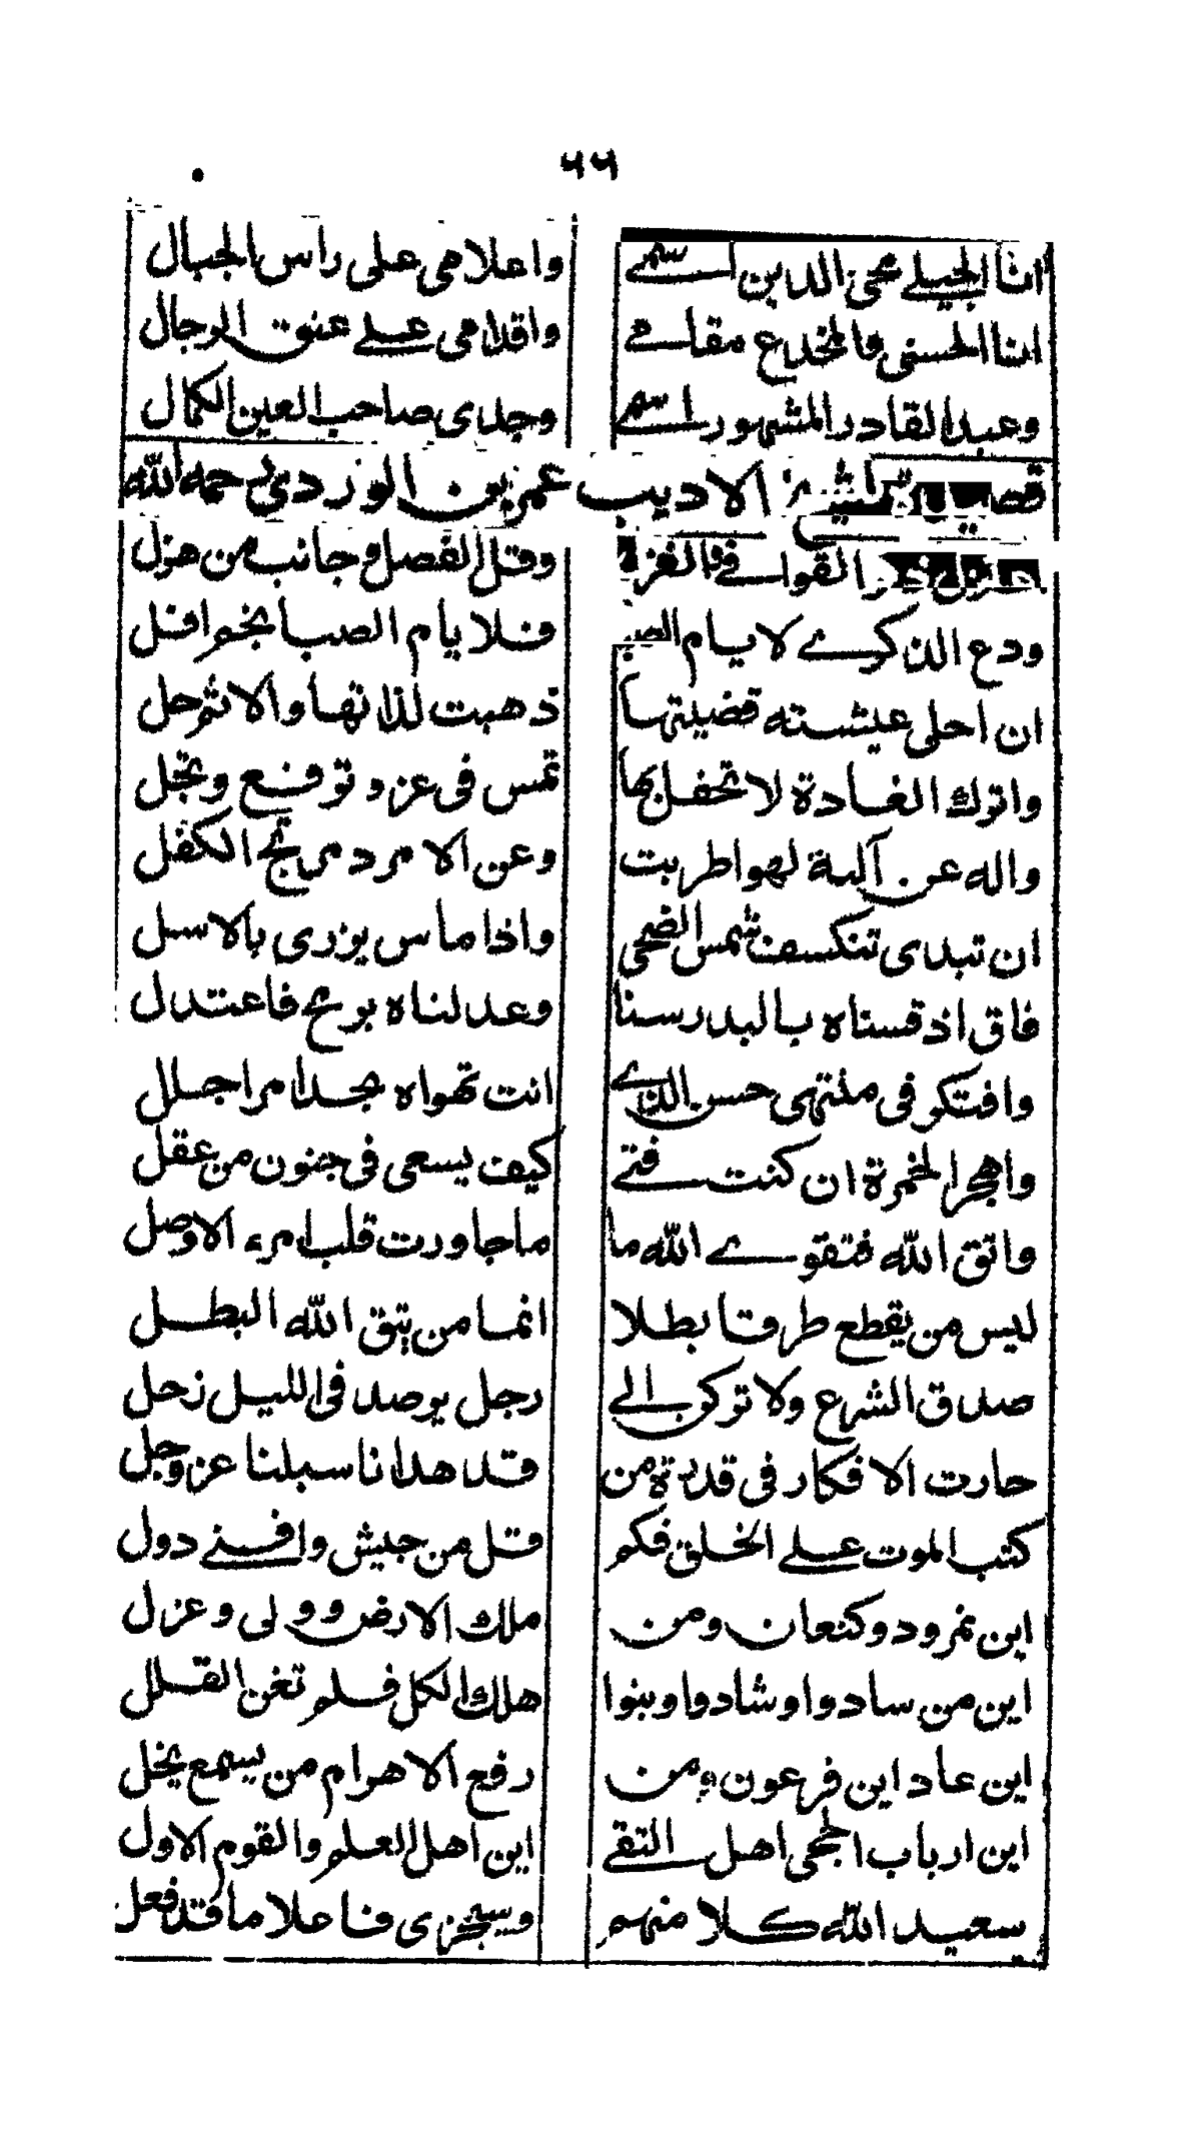 ٦٦
انا الجيلے محى الدين اسمے واعلامى على راس الجبال
انا الحسنى والمخدع مقامے واقدامى علے عنق الرجال
وعبد القادر المشهور اسمے وجدى صاحب العين الكمال
قصيدة للشيخ الاديب عمر بن الوردى رحمه الله
ذكر القوافے والغزل وقل الفصل وجانب من هزل
ودع الذكرے لا يام الصبا فلا يام الصبا نجم افل
ان احلى عيشته قضيتها ذهبت لذاتها والاثم حل
واترك الغادة لا تحفل بها تمس فى عز و توفع وتجل
واله عن آلة لهو اطربت وعن الامرد مرتج الكفل
ان تبدى تنكسف شمس الضحى واذا ماس يزرى بالاسل
فاق اذ قسناه بالبدر سنا وعدلناه برمح فاعتدل
وافتكر فى منتهى حسن الذے انت تهواه تجد امرا جلل
واهجر الخمرة ان كنت فتے كيف يسعى فى جنون من عقل
واتق الله فتقوے الله ما ما جاورت قلب امرء الا وصل
ليس من يقطع طرقا بطلا انما من يتق الله البطل
صدق الشرع ولا تركن الے رجل يرصد فى الليل زحل
حارت الافكار فى قدرة من قد هدانا سبلنا عز وجل
كتب الموت علے الخلق فكم قل من جيش وافنے دول
اين نمرود وكنعان ومن ملك الارض وولى وعزل
اين من سادوا وشادوا وبنوا هلك الكل فلم تغن القلل
اين عاد اين فرعون ومن رفع الاهرام من يسمع يخل
اين ارباب الحجى اهل التقے اين اهل العلم والقوم الاول
سيعيد الله كلا منهم وسيجزى فاعلا ما قد فعل